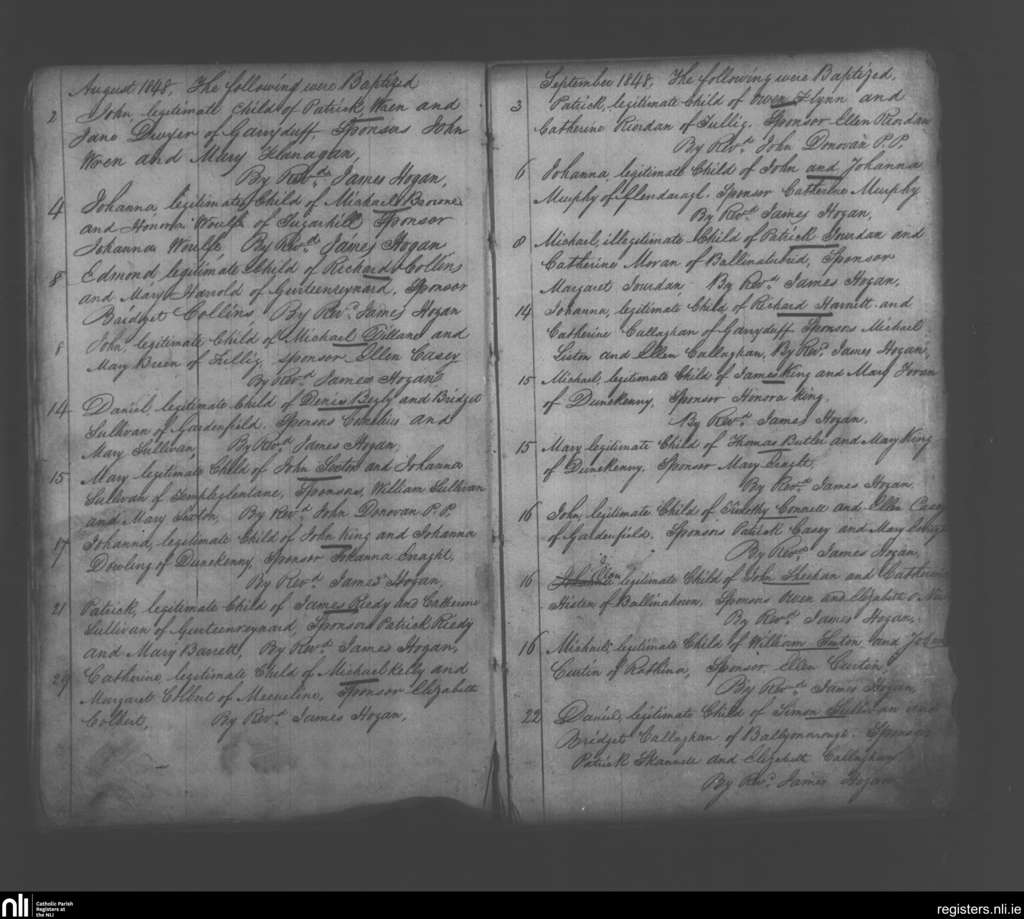 August 1848, The following were Baptized
2 John, legitimate Child of Patrick Wren and
Jane Dwyer of Garryduff, Sponsors John
Wren and Mary Flanagan,
By Revd. James Hogan,
4 Johanna, legitimate Child of Michael Browne
and Honora Woulfe of Sugarhill Sponsor
Johanna Woulfe By Revd. James Hogan
8 Edmond legitimate Child of Richard Collins
and Mary Harrold of Gurteenreynard, Sponsor
Bridget Collins, By Revd. James Hogan
8 John, legitimate Child of Michael Dillane and
Mary Breen of Tullig, Sponsor Ellen Casey
By Revd James Hogan
14 Daniel, legitimate Child of Denis Begly and Bridget
Sullivan of Gardenfield, Sponsors Cornelius and
Mary Sullivan, By Revd James Hogan,
15 Mary legitimate Child of John Sexton and Johanna
Sullivan of Templeglentane, Sponsors, William Sullivan
and Mary Sexton, By Revd. John Donovan P.P.
17 Johanna, legitimate Child of John King and Johanna
Dowling of Dunekenny, Sponsor Johanna Enaght,
By Revd James Hogan,
21 Patrick, legitimate Child of James Reedy and Catherine
Sullivan of Gurteenreynard, Sponsors Patrick Reedy
and Mary Barrett, By Revd. James Hogan,
29 Catherine, legitimate Child of Michael Kelly and
Margaret Colbert of Meeneline, Sponsor Elizabeth
Colbert, By Revd. James Hogan,
September 1848, The following were Baptized,
3 Patrick, legitimate Child of Owen Flynn and
Catherine Riordan of Tullig, Sponsor Ellen Riordan
By Revd. John Donovan P.P.
6 Johanna legitimate Child of John and Johanna
Murphy of Glendaragh. Sponsor Catherine Murphy
By Revd. James Hogan,
8 Michael, illegitimate Child of Patrick Jourdan and
Catherine Moran of Sponsor
Margaret Jourdan By Revd. James Hogan,
14 Johanna, legitimate Child of Richard Harnett and
Catherine Callaghan of Garryduff Sponsors Michael
Liston and Ellen Callaghan, By Revd. James Hogan,
15 Michael, legitimate Child of James King and Mary Foran
of Dunekenny, Sponsor Honora King,
By Revd. James Hogan,
15 Mary legitimate Child of Thomas Butler and Mary King
of Dunekenny, Sponsor Mary Enaght,
By Revd. James Hogan,
16 John, legitimate Child of Timothy Connell and Ellen Casey
of Gardenfield, Sponsors Patrick Casey and Mary
By Revd. James Hogan,
16 legitimate Child of John Sheehan and Catherine
Histen of Ballinahown, Sponsors Owen and Elizabeth
By Revd. James Hogan,
16 Michael, legitimate Child of William Sexton and
Curtin of Rathlina, Sponsor Ellen Curtin
By Revd. James Hogan,
22 Daniel, legitimate Child of Simon Sullivan and
Bridget Callaghan of Sponsors
Patrick Scannell and Elizabeth Callaghan
By Revd. James Hogan
nli Catholic Parish
Registers at
the NLI
registers.nli.ie